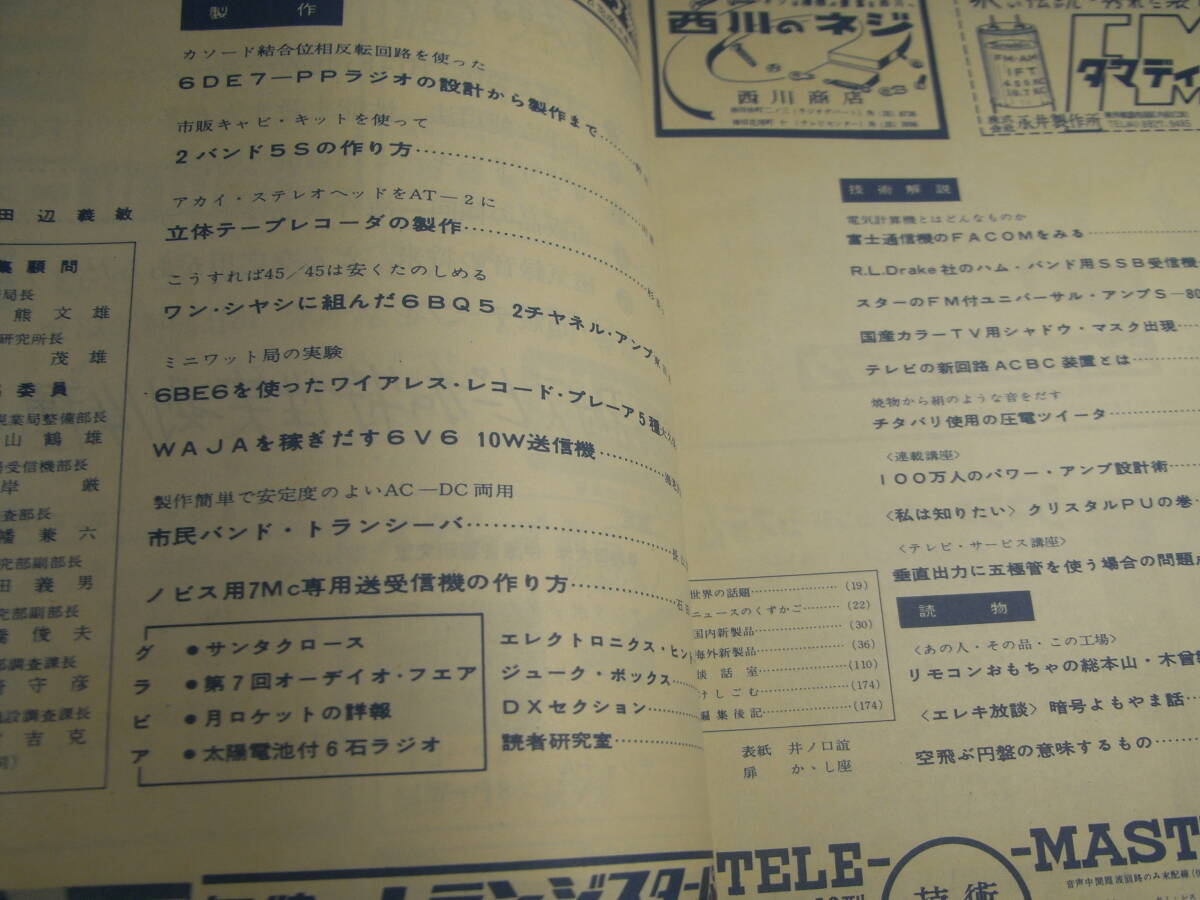 製作
カソード結合位相反転回路を使った
6DE7—PPラジオの設計から製作まで……
市販キャビ・キットを使って
2バンド5Sの作り方……
アカイ・ステレオヘッドをAT—2に
立体テープレコーダの製作……
こうすれば45/45は安くたのしめる
ワン・シヤシに組んだ6BQ5 2チヤネル・アンプ
ミニワット局の実験
6BE6を使ったワイアレス・レコード・プレーア5種
WAJAを稼ぎだす6V6 10W送信機……
製作簡単で安定度のよいAC—DC両用
市民バンド・トランシーバ……
ノビス用7Mc専用送受信機の作り方……
グラビア
●サンタクロース
●第7回オーデイオ・フエア
●月ロケットの詳報
●太陽電池付6石ラジオ
エレクトロニクス・ヒン
ジューク・ボックス……
DXセクション……
読者研究室……
田辺義敏
顧問
局長
熊文雄
研究所長
茂雄
委員
業局整備部長
山鶴雄
受信機部長
岸 厳
査部長
兼六
究部副部長
田義男
究部副部長
俊夫
部調査課長
守彦
設調査課長
吉克
西川のネジ
西川商店
FM-AM
IFT
ダマティ
株式会社 永井製作所
技術解説
電気計算機とはどんなものか
富士通信機のFACOMをみる……
R.L.Drake社のハム・バンド用SSB受信機
スターのFM付ユニバーサル・アンプS—80
国産カラーTV用シャドウ・マスク出現……
テレビの新回路ACBC装置とは……
焼物から絹のような音をだす
チタバリ使用の圧電ツイータ……
〈連載講座〉
100万人のパワー・アンプ設計術……
〈私は知りたい〉クリスタルPUの巻……
〈テレビ・サービス講座〉
垂直出力に五極管を使う場合の問題点
世界の話題……(19)
ニュースのくずかご……(22)
国内新製品……(30)
海外新製品……(36)
談話室……(110)
けしごむ……(174)
編集後記……(174)
表紙 井ノ口誼
扉 かゝし座
読物
〈あの人・その品・この工場〉
リモコンおもちゃの総本山・木曾
〈エレキ放談〉暗号よもやま話……
空飛ぶ円盤の意味するもの……
トランジスター
TELE-
技術
-MAST
音声中間周波回路のみ未配線